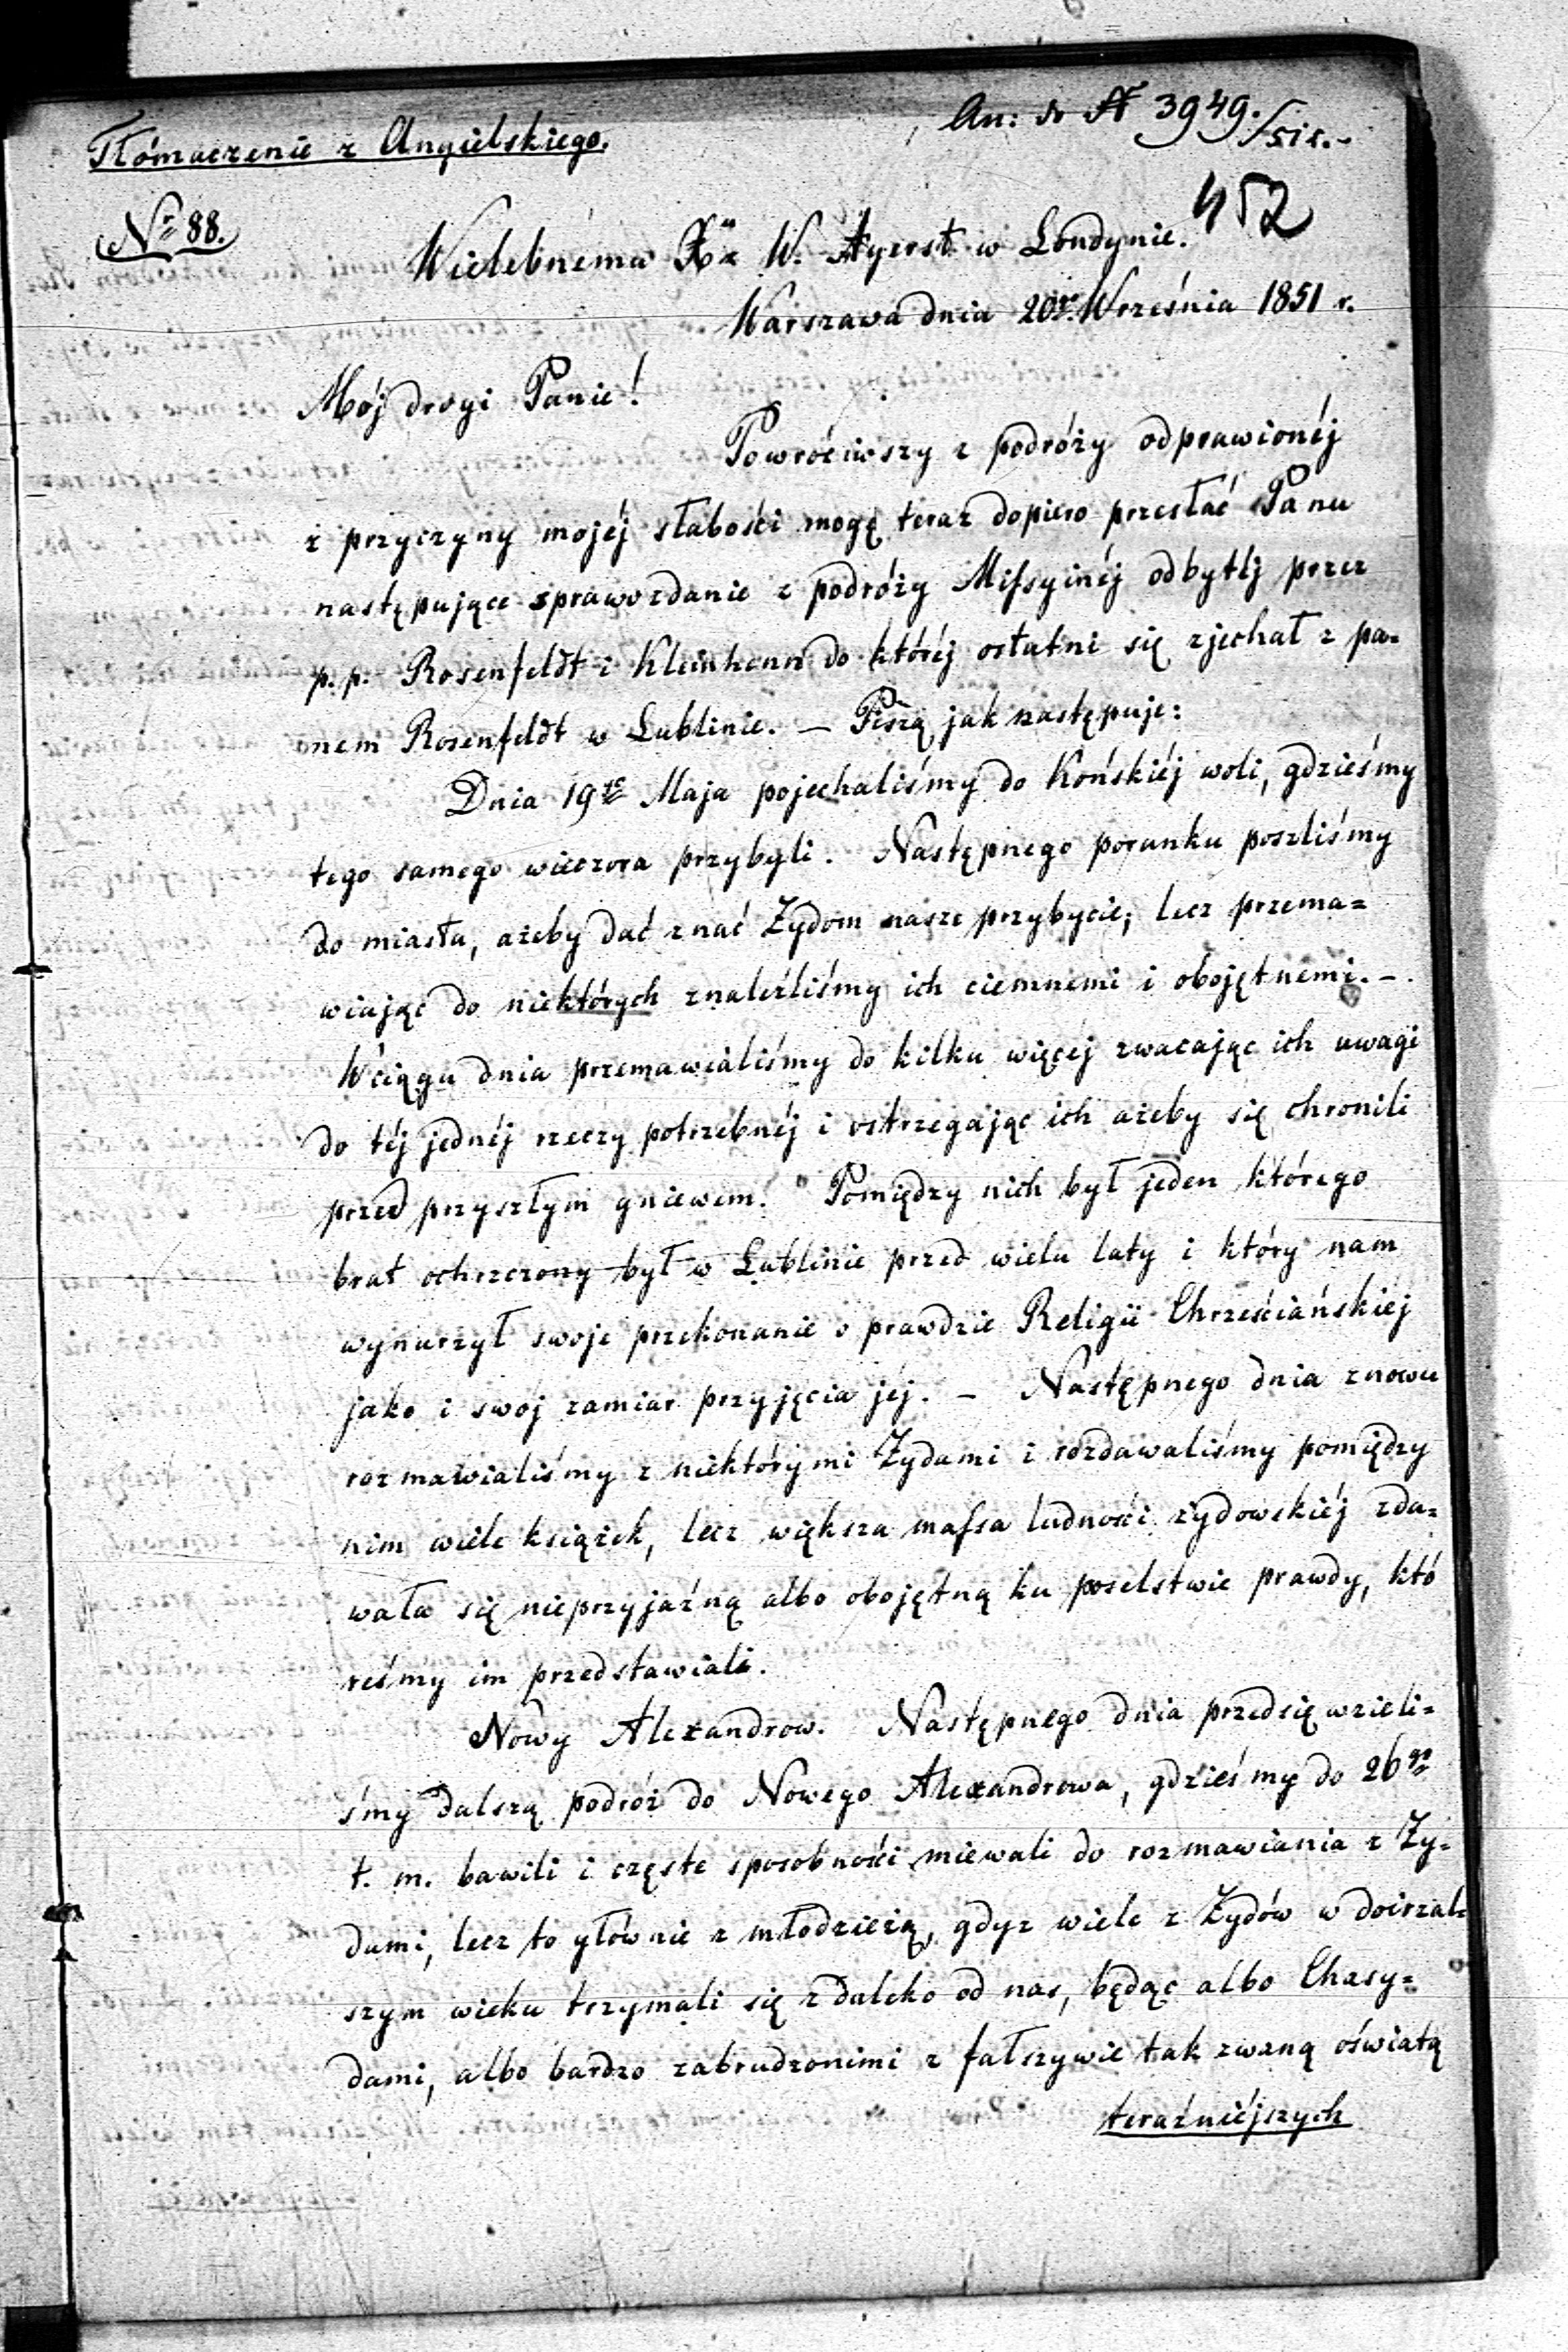 An: do N 3949./51 r.-
Tłómaczenie z Angielskiego.
452
Nr 88.
Wielebnému Xu W. Ayerst w Londynie.
Warszawa dnia 20go Września 1851 r.
Mój drogi Panie!
Powróciwszy z podróży odprawionéj
z przyczyny mojéj słabości mogę teraz dopiero przesłać Panu
następujące sprawozdanie z podróży Missyinéj odbytéj przez
p.p. Rosenfeldt i Kleinhenn do któréj ostatni się zjechał z pa=
nem Rosenfeldt w Lublinie. — Piszą jak następuje:
Dnia 19go Maja pojechaliśmy do Końskiéj woli, gdzieśmy
tego samego wieczora przybyli. Następnego poranku poszliśmy
do miasta, ażeby dać znać Żydom nasze przybycie; lecz przema=
wiając do niektórych znaleźliśmy ich ciemnemi i obojętnemi. —
W ciągu dnia przemawialiśmy do kilku więcéj zwacając ich uwagi
do téj jednéj rzeczy potrzebnéj i ostrzegając ich ażeby się chronili
przed przyszłym gniewem. Pomiędzy nich był jeden którego
brat ochrzczony był w Lublinie przed wielu laty i który nam
wynurzył swoje przekonanie o prawdzie Religii Chrześciańskiéj
jako i swój zamiar przyjęcia jéj. — Następnego dnia znowu
rozmawialiśmy z niektórymi Żydami i rozdawaliśmy pomiędzy
nim wiele książek, lecz większa massa ludności żydowskiéj zda=
wała się nieprzyjaźną albo obojętną ku poselstwie prawdy, któ
reśmy im przedstawiali.
Nowy Alexandrow. Następnego dnia przedsięwzieli=
śmy dalszą podróż do Nowego Alexandrowa, gdzieśmy do 26go
t. m. bawili i częste sposobności miewali do rozmawiania z Ży=
dami, lecz to głównie z młodzieżą, gdyż wiele z Żydów w doirzal=
szym wieku trzymali się z daleko od nas, będąc albo Chasy=
dami, albo bardzo zabrudzonimi z fałszywie tak zwaną oświatą
teraźniéjszych